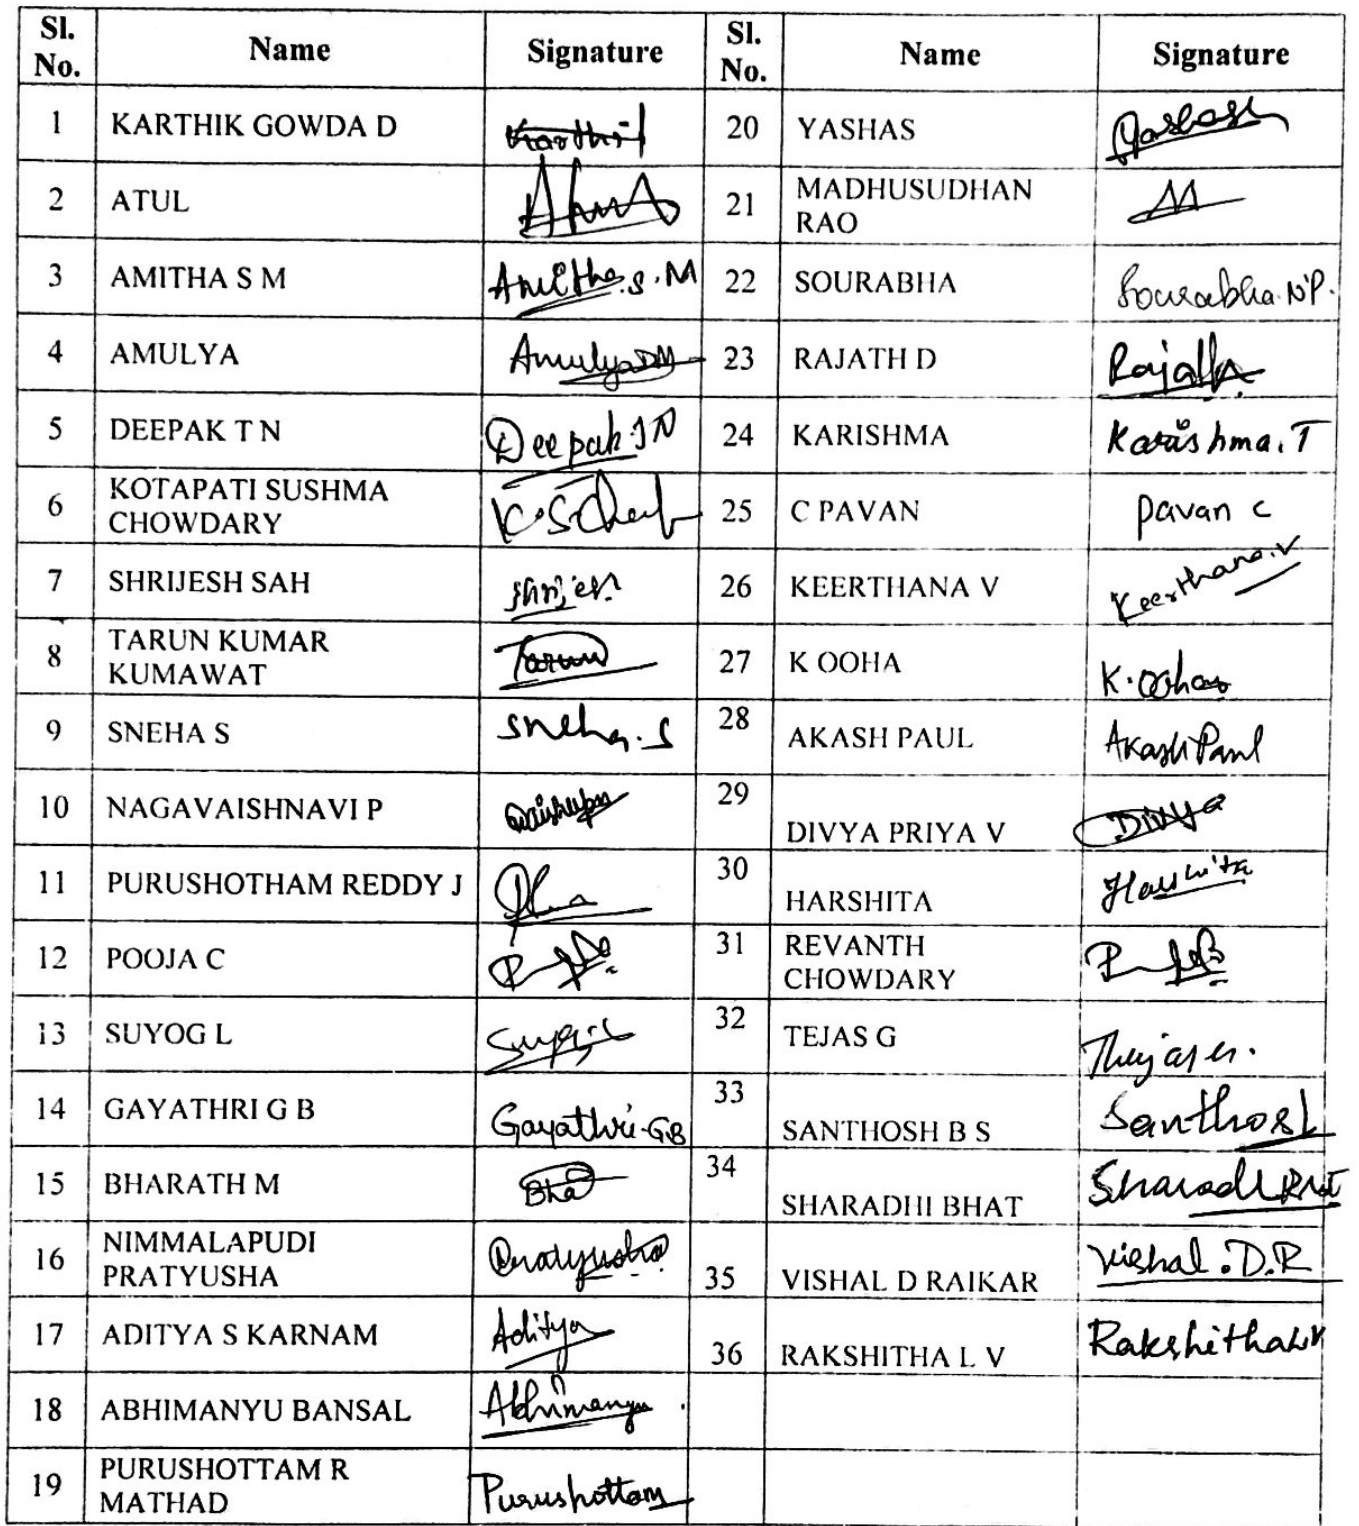 Sl. No. Name Signature Sl. No. Name Signature
1 KARTHIK GOWDA D Karthik 20 YASHAS
2 ATUL 21 MADHUSUDHAN RAO
3 AMITHA S M Amitha.S.M 22 SOURABHA Sourabha.N.P.
4 AMULYA Amulya 23 RAJATH D Rajath
5 DEEPAK T N Deepak.T N 24 KARISHMA Karishma.T
6 KOTAPATI SUSHMA CHOWDARY 25 C PAVAN Pavan C
7 SHRIJESH SAH Shrijesh 26 KEERTHANA V Keerthana.V
8 TARUN KUMAR KUMAWAT Tarun 27 K OOHA K.Ooha
9 SNEHA S Sneha.S 28 AKASH PAUL Akash Paul
10 NAGAVAISHNAVI P 29 DIVYA PRIYA V Divya
11 PURUSHOTHAM REDDY J 30 HARSHITA Harshita
12 POOJA C 31 REVANTH CHOWDARY
13 SUYOG L 32 TEJAS G
14 GAYATHRI G B Gayathri.GB 33 SANTHOSH B S Santhosh
15 BHARATH M Bha 34 SHARADHI BHAT
16 NIMMALAPUDI PRATYUSHA Pratyusha 35 VISHAL D RAIKAR Vishal.D.R
17 ADITYA S KARNAM Aditya 36 RAKSHITHA L V Rakshitha L V
18 ABHIMANYU BANSAL Abhimanyu
19 PURUSHOTTAM R MATHAD Purushottam